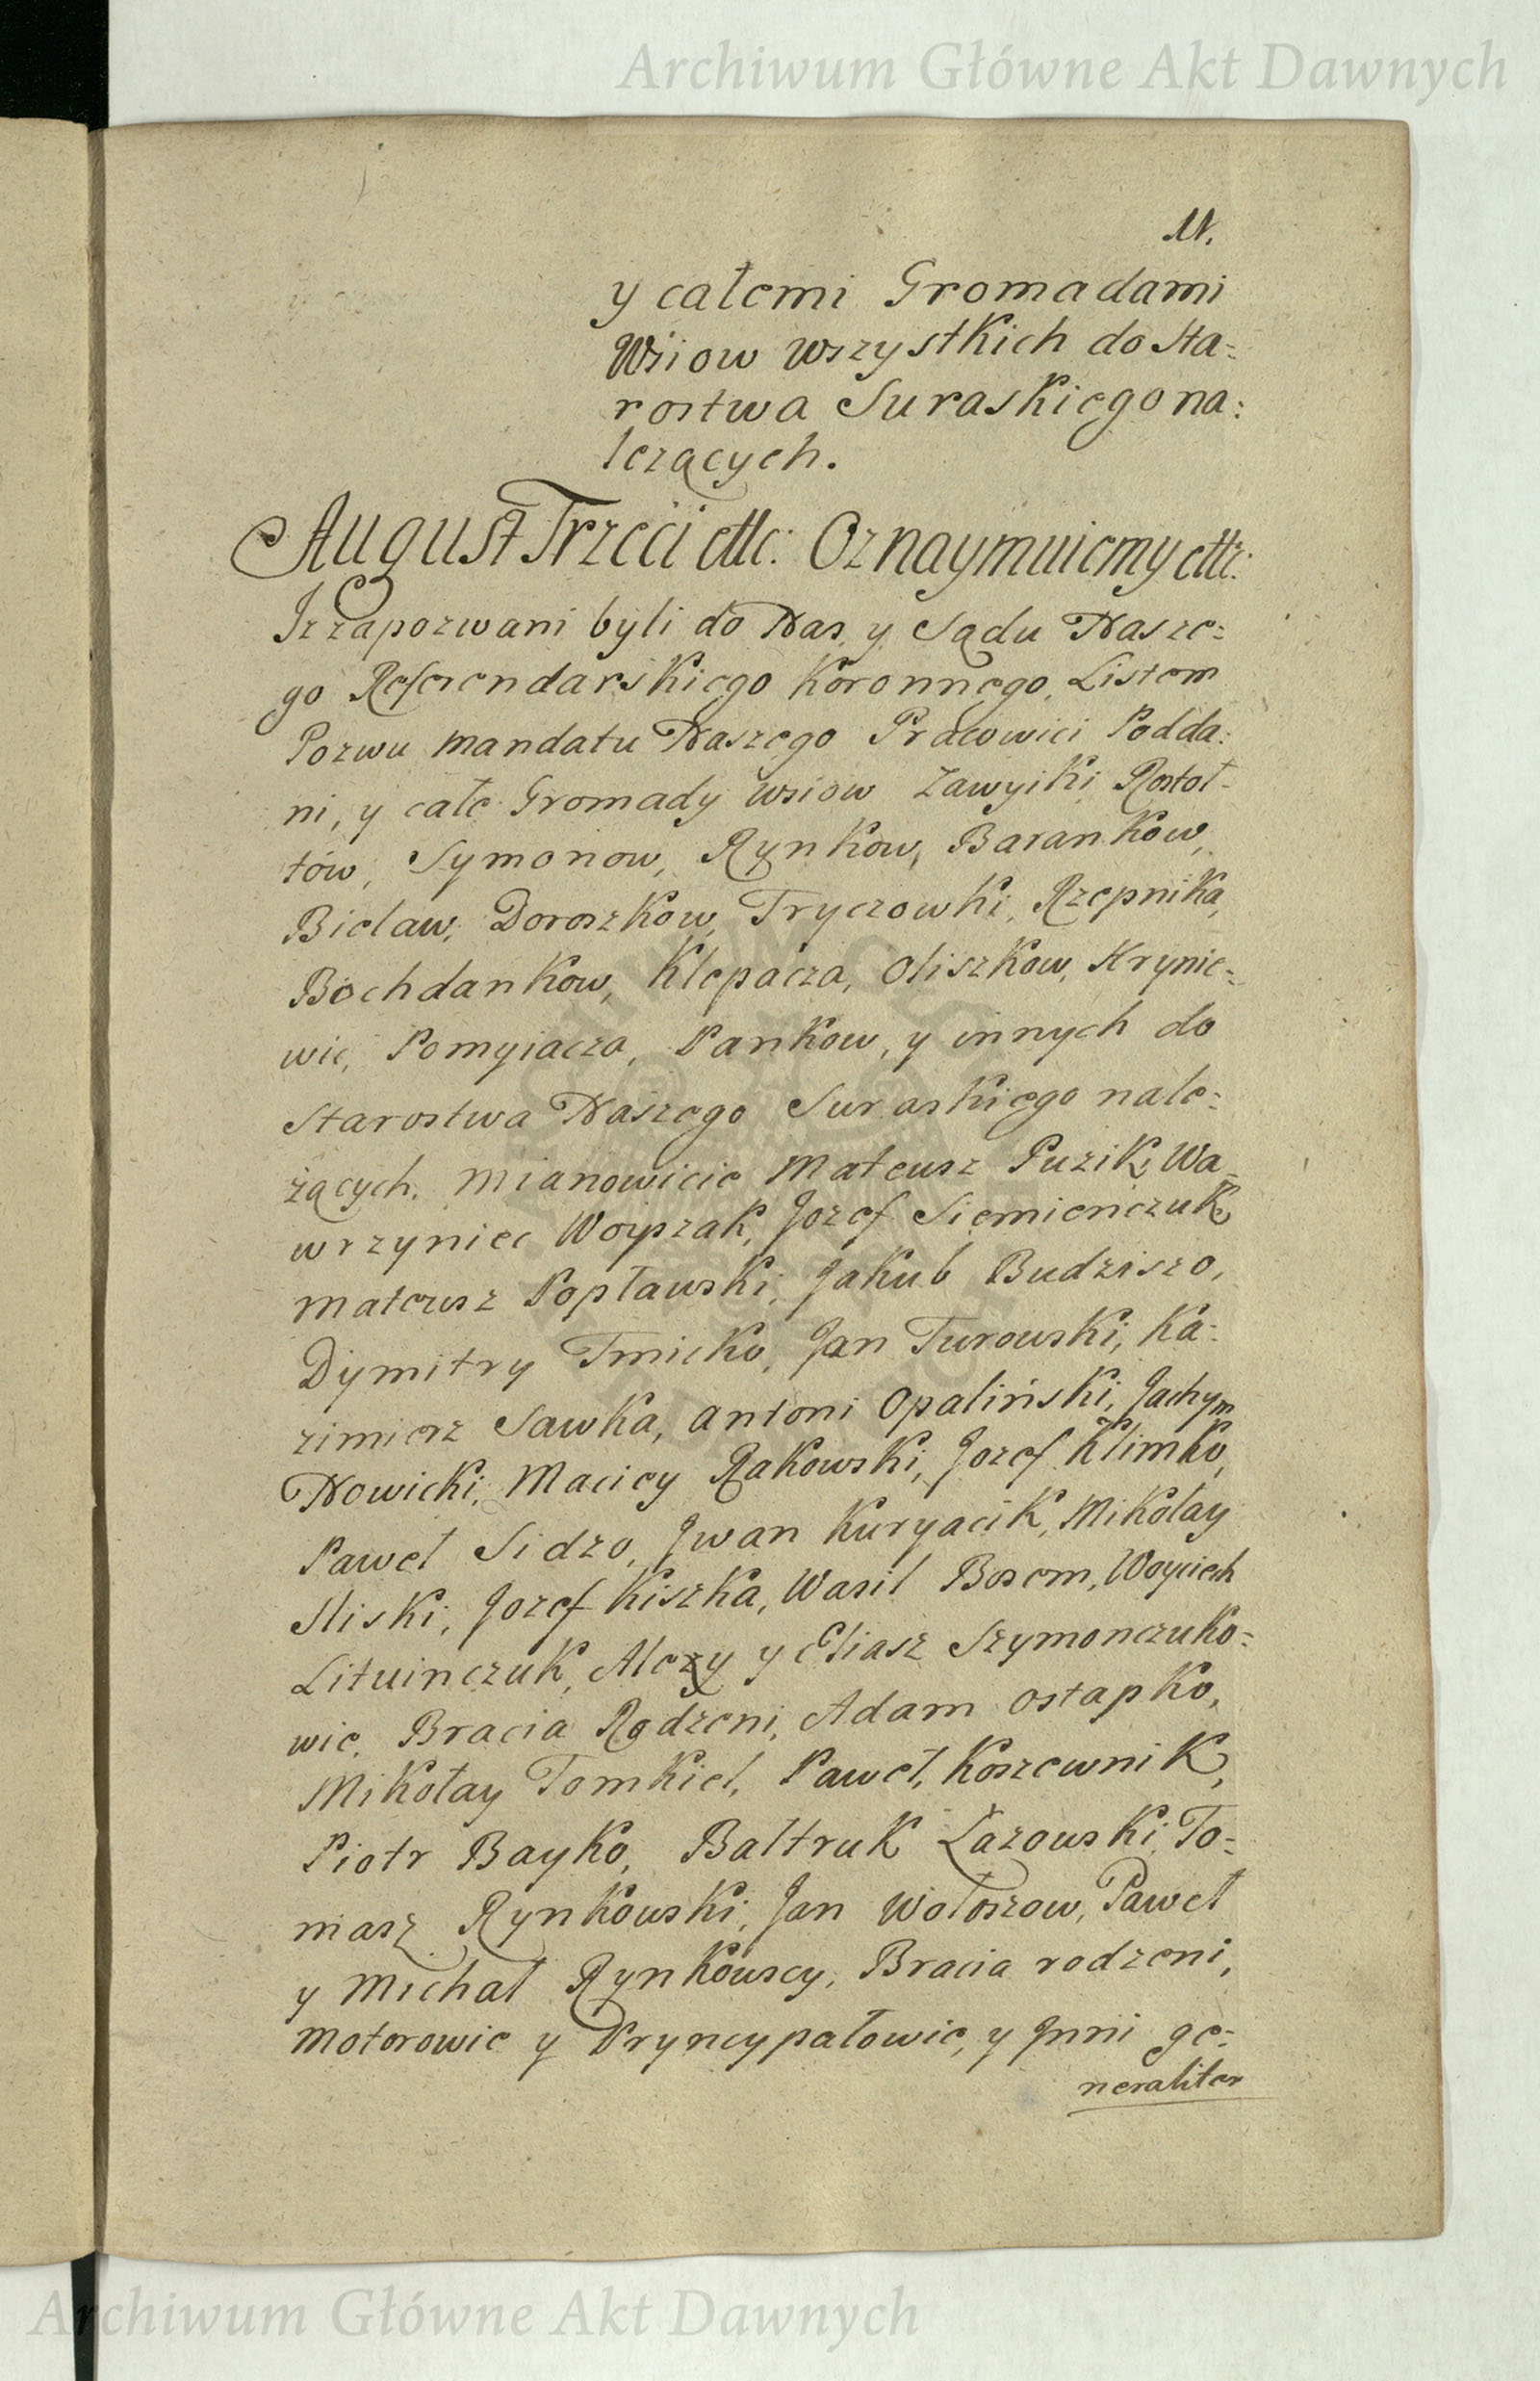 Archiwum Główne Akt Dawnych
11.
y całemi Gromadami
Wsiow wszystkich do Sta=
rostwa Suraskiego na=
leżących.
August Trzeci etc: Oznaymuiemy etc:
Iż zapozwani byli do Nas y Sądu Nasze=
go Referendarskiego Koronnego, Listem
Pozwu mandatu Naszego Pracowici Podda=
ni, y całe Gromady wsiow Zawyiki, Rostoł=
tów, Symonow, Rynkow, Barankow,
Bielaw, Doroszkow, Tryczowki, Rzepnika,
Bochdankow, Klepacza, Oliszkow, Strynie=
wic, Pomyiacza, Pankow, y innych do
Starostwa Naszego Suraskiego nale=
żących. Mianowicie Mateusz Puzik, Wa=
wrzyniec Woyszak, Jozef Siemieńczuk
Mateusz Popławski, Jakub Budziszo,
Dymitry Tmicko, Jan Turowski, Ka=
zimierz Sawka, Antoni Opaliński, Jachym
Nowicki, Maciey Rakowski, Jozef Klimko,
Paweł Sidzo, Jwan Kuryacik, Mikołay
Sliski, Jozef Kiszka, Wasil Bosem, Woyciech
Lituinczuk, Alexy y Eliasz Szymonczuko=
wie, Bracia Rodzeni, Adam Ostapko,
Mikołay Tomkiel, Paweł, Koszewnik,
Piotr Bayko, Baltruk Łazowski, To=
masz Rynkowski, Jan Wołoszow, Paweł
y Michał Rynkowscy, Bracia rodzeni,
Motorowie y Pryncypałowie, y Jnni ge=
neraliter
Archiwum Główne Akt Dawnych